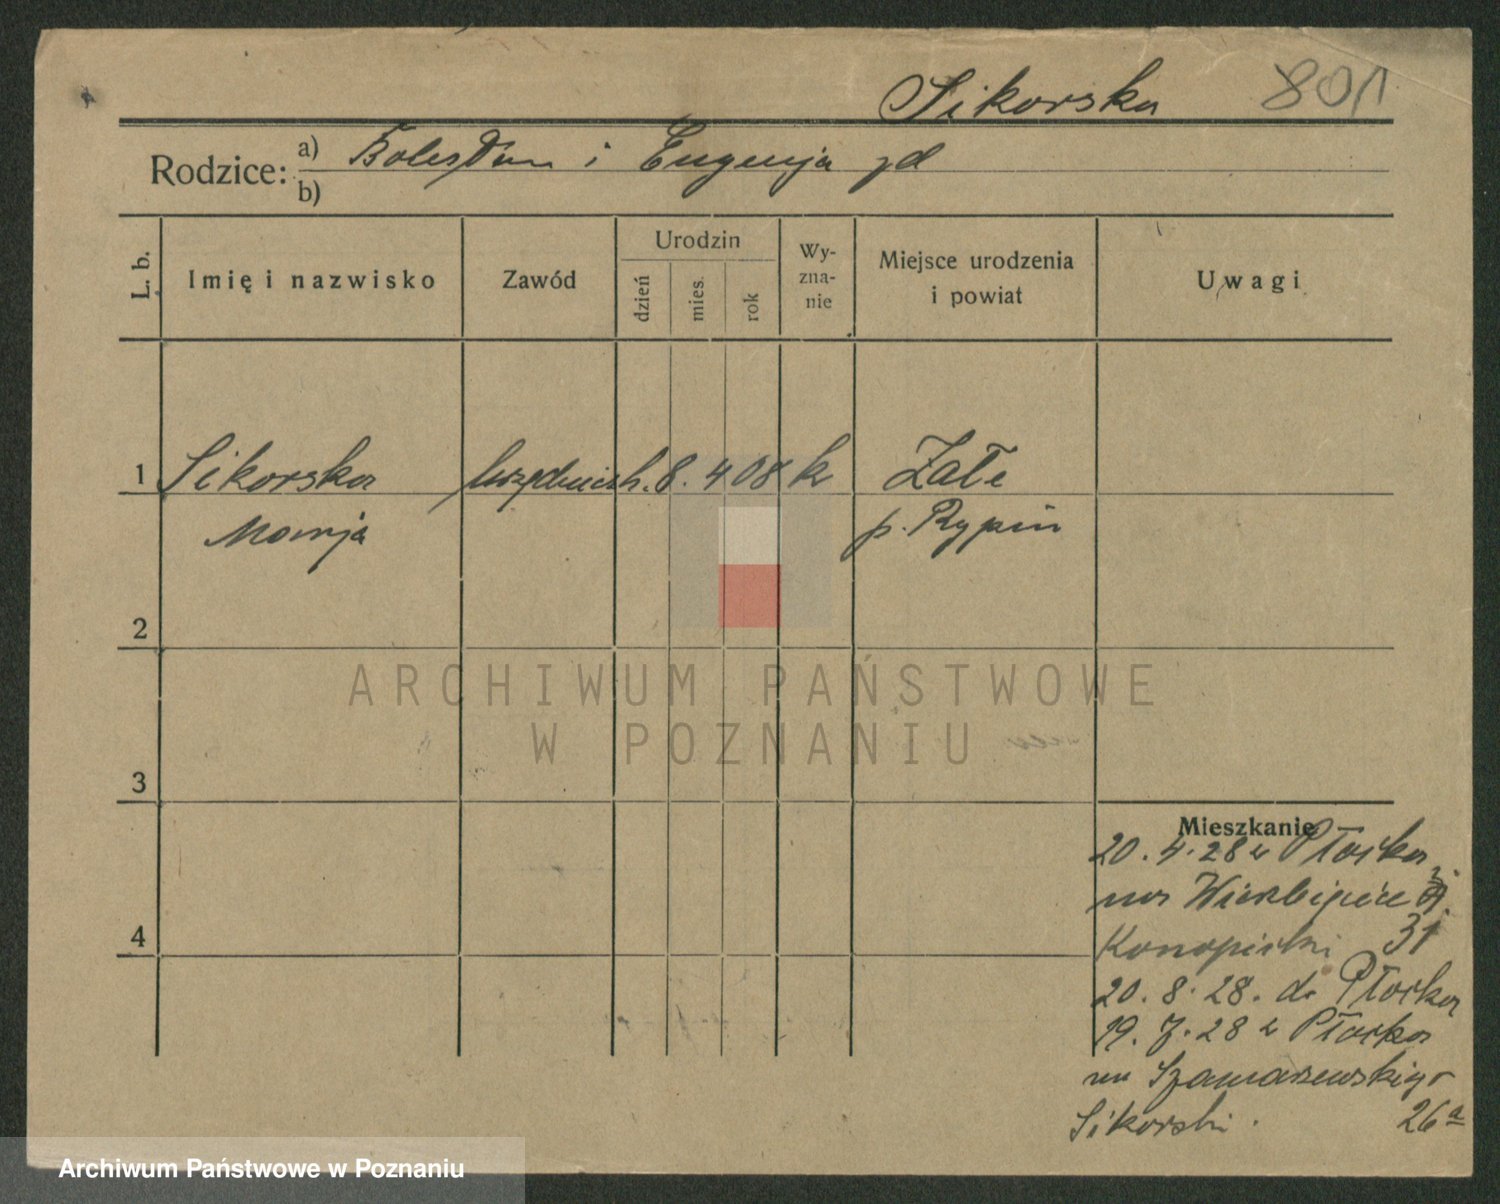 Sikorska 801
Rodzice: a) Bolesław i Eugenja zd
b)
L. b. Imię i nazwisko Zawód Urodzin dzień mies. rok Wy-zna-nie Miejsce urodzenia i powiat Uwagi
1 Sikorska urzędniczk. 8. 4 08 k Załe
Marija p. Rypin
2
ARCHIWUM PAŃSTWOWE
W POZNANIU
3
Mieszkanie
20. 4. 28 z Płocka
na Wierzbięcice
4 Konopiński 31
20. 8. 28. do Płocka
19. 7. 28 z Płocka
na Szamarzewskiego
Sikorski. 26a
Archiwum Państwowe w Poznaniu